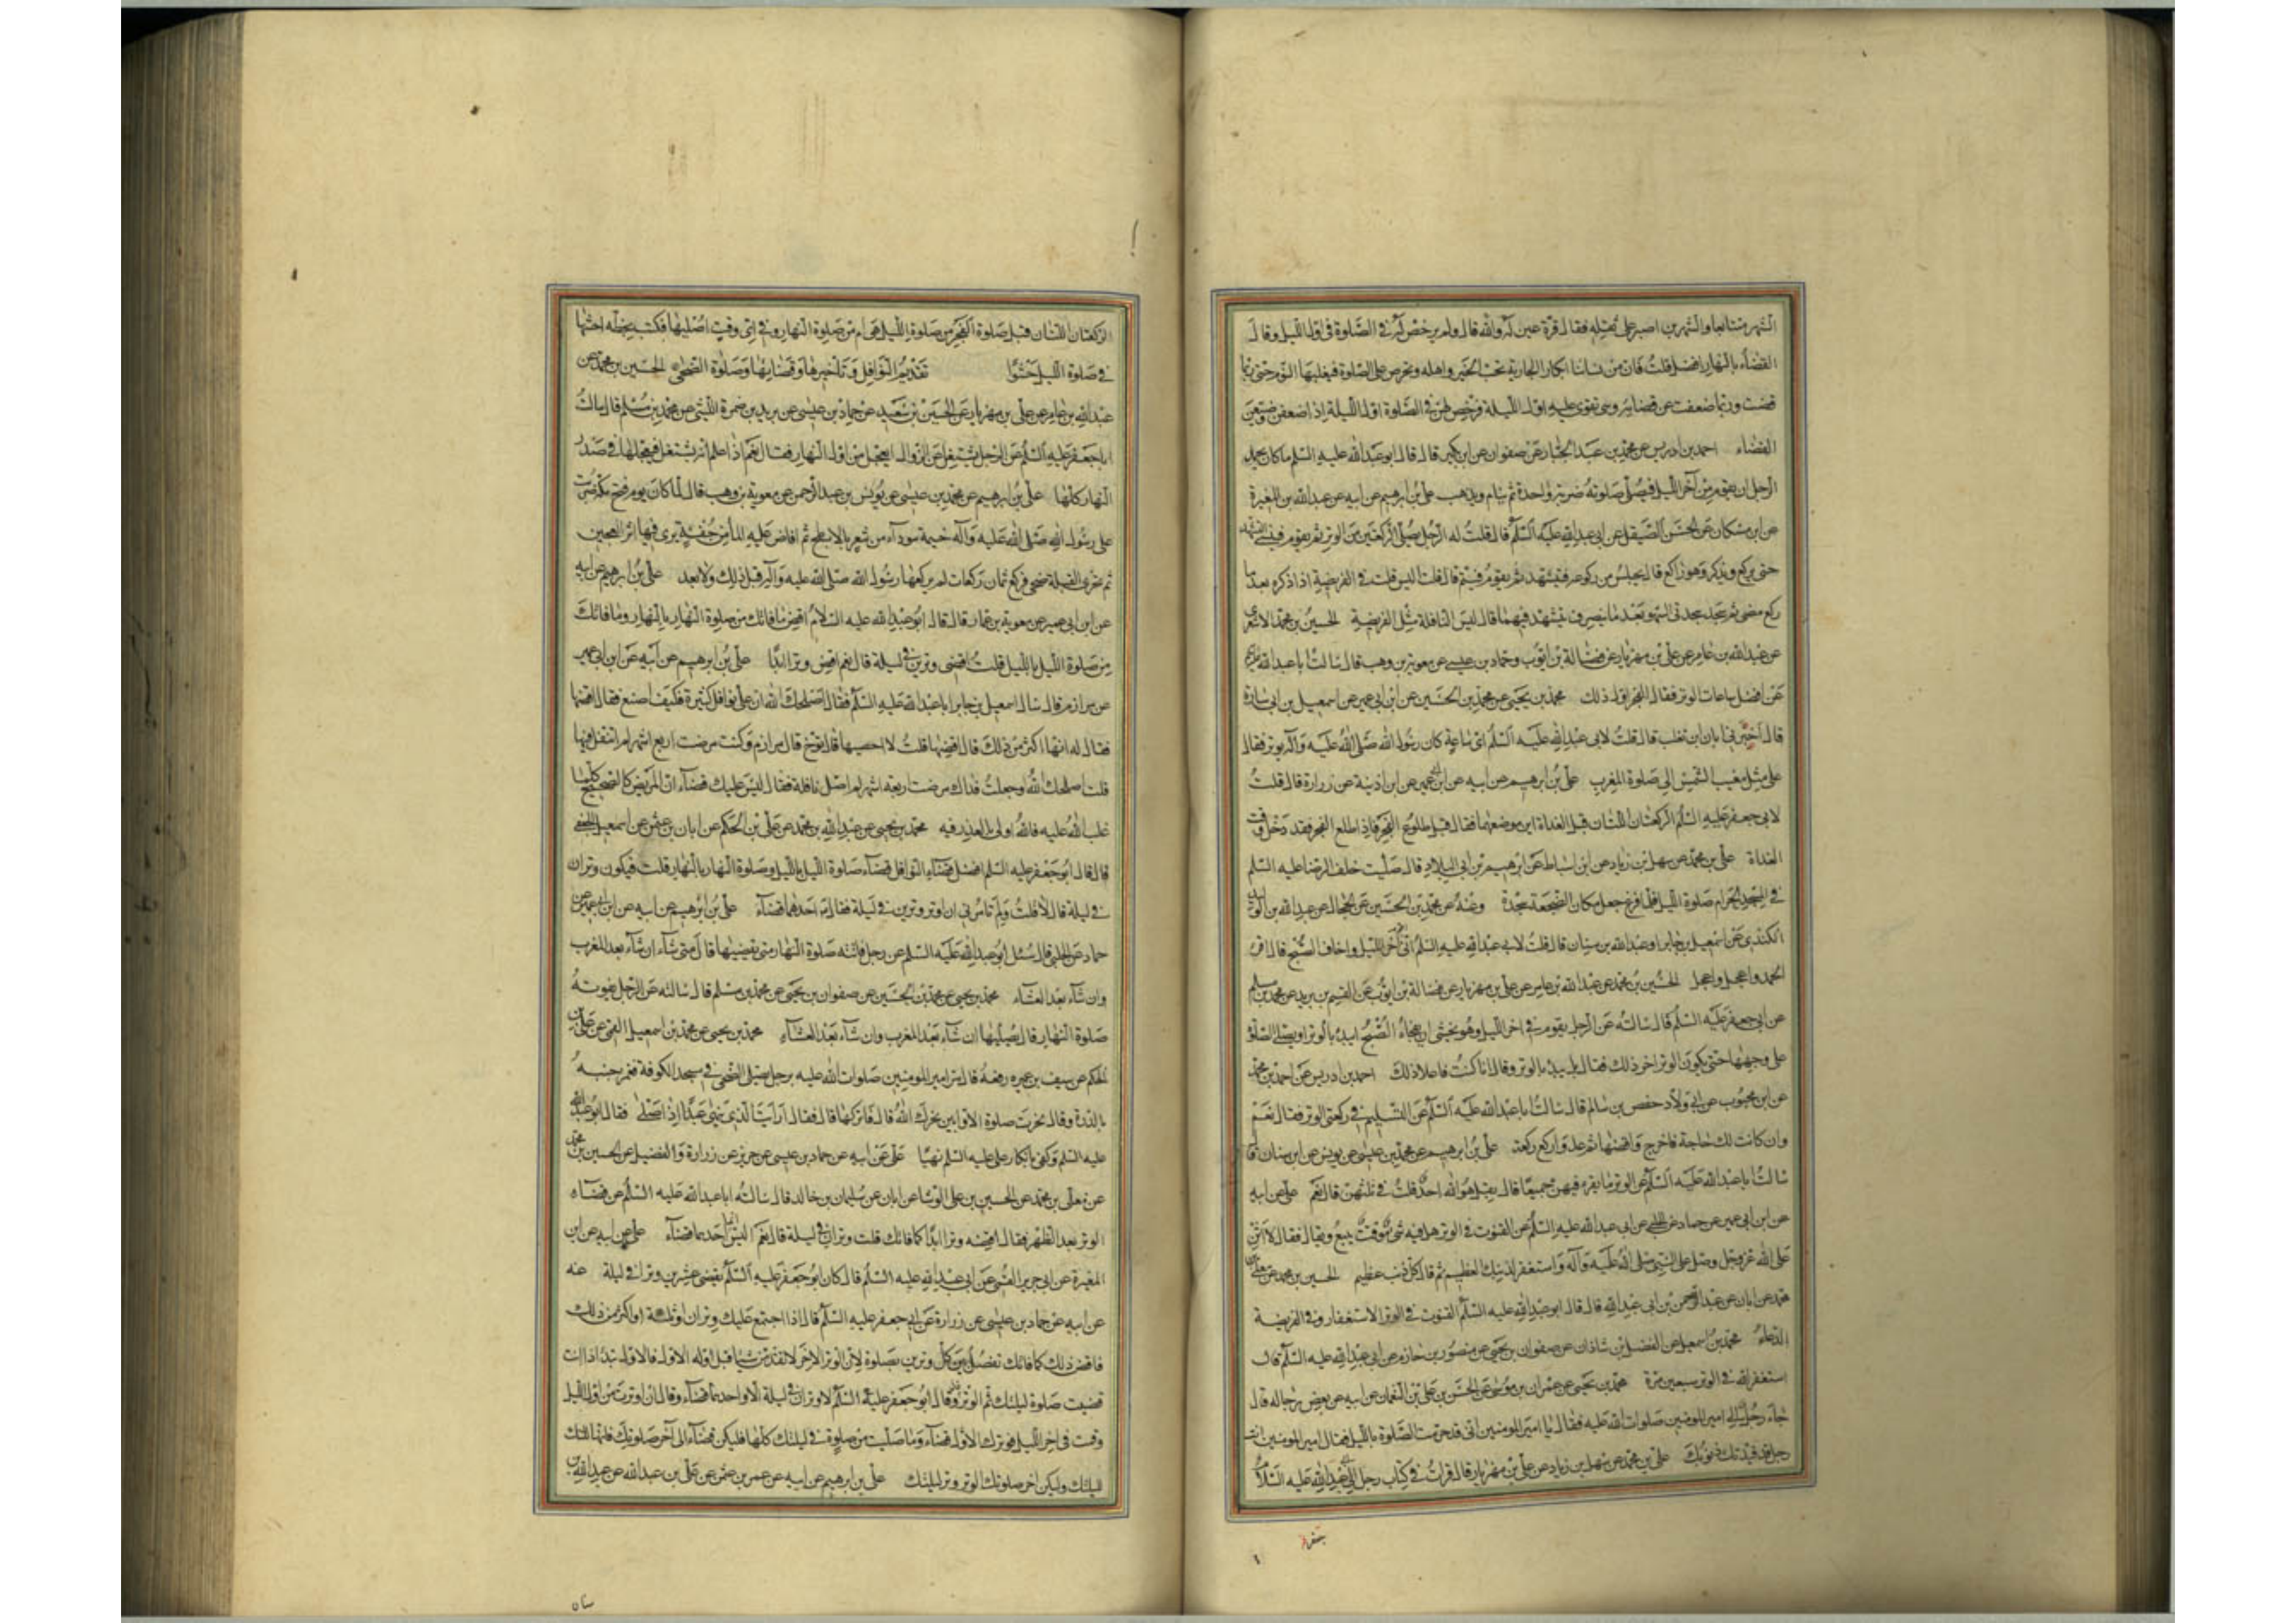 الشهر متتابعا والشهرين اصبر على ثقله فقال قرة عين له والله قال ولم يرخص له في الصلوة في اول الليل وقال
القضاء بالنهار افضل قلت فان من نسائنا ابكار الجارية تحب الخير واهله وتحرص على الصلوة فيغلبها النوم حتى ربما
قضت وربما ضعفت عن قضائه وهي تقوى عليه اول الليلة فرخص لهن في الصلوة اول الليلة اذا ضعفن وضيعن
القضاء احمد بن ادريس عن محمد بن عبد الجبار عن صفوان عن ابن بكير قال قال ابو عبد الله عليه السلم ما كان يحمد
الرجل ان يقوم من آخر الليل فيصلى صلوته ضربة واحدة ثم ينام ويذهب على بن ابرهيم عن ابيه عن عبد الله بن المغيرة
عن ابن مسكان عن الحسن الصيقل عن ابى عبد الله عليه السلم قال قلت له الرجل يصلى الركعتين من الوتر ثم يقوم فينسى التشهد
حتى يركع ويذكر وهو راكع قال يجلس من ركوعه فيتشهد ثم يقوم فيتم قال قلت اليس قلت في الفريضة اذا ذكره بعد ما
ركع مضى ثم سجد سجدتى السهو بعد ما ينصرف يتشهد فيهما قال ليس النافلة مثل الفريضة الحسين بن محمد الاشعرى
عن عبد الله بن عامر عن على بن مهزيار عن فضالة بن ايوب وحماد بن عيسى عن معوية بن وهب قال سالت ابا عبد الله
عن افضل ساعات الوتر فقال الفجر اول ذلك محمد بن يحيى عن محمد بن الحسين عن ابن ابى عمير عن اسمعيل بن ابى سارة
قال اخبرني ابان بن تغلب قال قلت لابى عبد الله عليه السلم اى ساعة كان رسول الله صلى الله عليه وآله يوتر فقال
على مثل مغيب الشمس الى صلوة المغرب على بن ابرهيم عن ابيه عن ابن ابى عمير عن ابن اذينة عن زرارة قال قلت
لابى جعفر عليه السلم الركعتان اللتان قبل الغداة اين موضعهما فقال قبل طلوع الفجر فاذا طلع الفجر فقد دخل وقت
الغداة على بن محمد عن سهل بن زياد عن ابن اسباط عن ابرهيم بن ابى البلاد قال صليت خلف الرضا عليه السلم
في المسجد الحرام صلوة الليل فلما فرغ جعل مكان الضجعة سجدة وعنه عن محمد بن الحسين عن الحجال عن عبد الله بن الوليد
الكندى عن اسمعيل بن جابر او عبد الله بن سنان قال قلت لابى عبد الله عليه السلم انى اقوم آخر الليل واخاف الصبح قال اقرا
الحمد واعجل واعجل الحسين بن محمد عن عبد الله بن عامر عن على بن مهزيار عن فضالة بن ايوب عن القسم بن بريد عن محمد بن مسلم
عن ابى جعفر عليه السلم قال سالته عن الرجل يقوم في اخر الليل وهو يخشى ان يفجاه الصبح ايبدا بالوتر او يصلى الصلوة
على وجهها حتى يكون الوتر اخر ذلك فقال بل يبدا بالوتر وقال انا كنت فاعلا ذلك احمد بن ادريس عن احمد بن محمد
عن ابن محبوب عن ابى ولاد حفص بن سالم قال سالت ابا عبد الله عليه السلم عن التسليم في ركعتى الوتر فقال نعم
وان كانت لك حاجة فاخرج واقضها ثم عد واركع ركعة على بن ابرهيم عن محمد بن عيسى عن يونس عن ابن سنان قال
سالت ابا عبد الله عليه السلم عن الوتر ما يقرء فيهن جميعا قال بقل هو الله احد قلت في ثلثهن قال نعم على عن ابيه
عن ابن ابى عمير عن حماد عن الحلبى عن ابى عبد الله عليه السلم عن القنوت في الوتر هل فيه شئ موقت يتبع ويقال فقال لا اثن
على الله عز وجل وصل على النبى صلى الله عليه وآله واستغفر لذنبك العظيم ثم قال كل ذنب عظيم الحسين بن محمد عن معلى بن
محمد عن ابان عن عبد الرحمن بن ابى عبد الله قال قال ابو عبد الله عليه السلم القنوت في الوتر الاستغفار وفي الفريضة
الدعاء محمد بن اسمعيل عن الفضل بن شاذان عن صفوان بن يحيى عن منصور بن حازم عن ابى عبد الله عليه السلم قال
استغفر الله في الوتر سبعين مرة محمد بن يحيى عن عمران بن موسى عن الحسن بن على بن النعمان عن ابيه عن بعض رجاله قال
جاء رجل الى امير المومنين صلوات الله عليه فقال يا امير المومنين انى قد حرمت الصلوة بالليل فقال امير المومنين انت
رجل قد قيدتك ذنوبك على بن محمد عن سهل بن زياد عن على بن مهزيار قال قرات في كتاب رجل الى ابى عبد الله عليه السلام
الركعتان اللتان قبل صلوة الفجر من صلوة الليل هى ام من صلوة النهار وفي اى وقت اصليها فكتب بخطه احشها
في صلوة الليل حشوا تقديم النوافل وتاخيرها وقضائها وصلوة الضحى الحسين بن محمد عن
عبد الله بن عامر عن على بن مهزيار عن الحسين بن سعيد عن حماد بن عيسى عن بريد بن ضمرة الليثى عن محمد بن مسلم قال سالت
ابا جعفر عليه السلم عن الرجل يشتغل عن الزوال ايعجل من اول النهار فقال نعم اذا علم انه يشتغل فيعجلها في صدر
النهار كلها على بن ابرهيم عن محمد بن عيسى عن يونس بن عبد الرحمن عن معوية بن وهب قال لما كان يوم فتح مكة ضربت
على رسول الله صلى الله عليه وآله خيمة سوداء من شعر بالابطح ثم افاض عليه الماء من جفنة يرى فيها اثر العجين
ثم تحرى القبلة ضحى فركع ثمان ركعات لم يركعها رسول الله صلى الله عليه وآله قبل ذلك ولا بعد على بن ابرهيم عن ابيه
عن ابن ابى عمير عن معوية بن عمار قال قال ابو عبد الله عليه السلام اقض ما فاتك من صلوة النهار بالنهار وما فاتك
من صلوة الليل بالليل قلت اقضى وترين في ليلة قال نعم اقض وترا ابدا على بن ابرهيم عن ابيه عن ابن ابى عمير
عن مرازم قال سال اسمعيل بن جابر ابا عبد الله عليه السلم فقال اصلحك الله ان على نوافل كثيرة فكيف اصنع فقال اقضها
فقال له انها اكثر من ذلك قال اقضها قلت لا احصيها قال توخ قال مرازم وكنت مرضت اربع اشهر لم اتنفل فيها
قلت اصلحك الله وجعلت فداك مرضت اربعة اشهر لم اصل نافلة فقال ليس عليك قضاء ان المريض كالصحيح كلما
غلب الله عليه فالله اولى بالعذر فيه محمد بن يحيى عن عبد الله بن محمد عن على بن الحكم عن ابان بن عثمن عن اسمعيل الجعفى
قال قال ابو جعفر عليه السلم افضل قضاء النوافل قضاء صلوة الليل بالليل وصلوة النهار بالنهار قلت فيكون وتران
في ليلة قال لا قلت ولم تامرنى ان اوتر وترين في ليلة فقال احدهما قضاء على بن ابرهيم عن ابيه عن ابن ابى عمير عن
حماد عن الحلبى قال سئل ابو عبد الله عليه السلم عن رجل فاتته صلوة النهار متى يقضيها قال متى شاء ان شاء بعد المغرب
وان شاء بعد العشاء محمد بن يحيى عن محمد بن الحسين عن صفوان بن يحيى عن محمد بن مسلم قال سالته عن الرجل يفوته
صلوة النهار قال يصليها ان شاء بعد المغرب وان شاء بعد العشاء محمد بن يحيى عن محمد بن اسمعيل القمى عن على بن
الحكم عن سيف بن عميره رفعه قال مر امير المومنين صلوات الله عليه برجل يصلى الضحى في مسجد الكوفة فغمز جنبه
بالدرة وقال نحرت صلوة الاوابين نحرك الله قال فاتركها قال فقال ارايت الذى ينهى عبدا اذا صلى فقال ابو عبد الله
عليه السلم وكفى بانكار على عليه السلم نهيا على عن ابيه عن حماد بن عيسى عن حريز عن زرارة والفضيل عن الحسين بن محمد
عن معلى بن محمد عن الحسين بن على الوشا عن ابان عن سليمان بن خالد قال سالت ابا عبد الله عليه السلم عن قضاء
الوتر بعد الظهر فقال اقضه وترا ابدا كما فاتك قلت وتران في ليلة قال نعم اليس انما احدهما قضاء على عن ابيه عن ابن
المغيرة عن ابى جرير القمى عن ابى عبد الله عليه السلم قال كان ابو جعفر عليه السلم يقضى عشرين وترا في ليلة عنه
عن ابيه عن حماد بن عيسى عن زرارة عن ابى جعفر عليه السلم قال اذا اجتمع عليك وتران او ثلثة او اكثر من ذلك
فاقض ذلك كما فاتك تفصل بين كل وترين بصلوة لان الوتر الاخر لا تقدمن شيئا قبل اوله الاول فالاول تبدا اذا انت
قضيت صلوة ليلتك ثم الوتر وقال ابو جعفر عليه السلم لا وتران في ليلة الا واحدهما قضاء وقال ان اوترت من اول الليل
وقمت في اخر الليل فوترك الاول قضاء وما صليت من صلوة في ليلتك كلها فليكن قضاء الى آخر صلوتك فانها لليلتك
وليكن اخر صلوتك الوتر وتر ليلتك على بن ابرهيم عن ابيه عن عمرو بن عثمن عن على بن عبد الله عن عبد الله بن
سنان